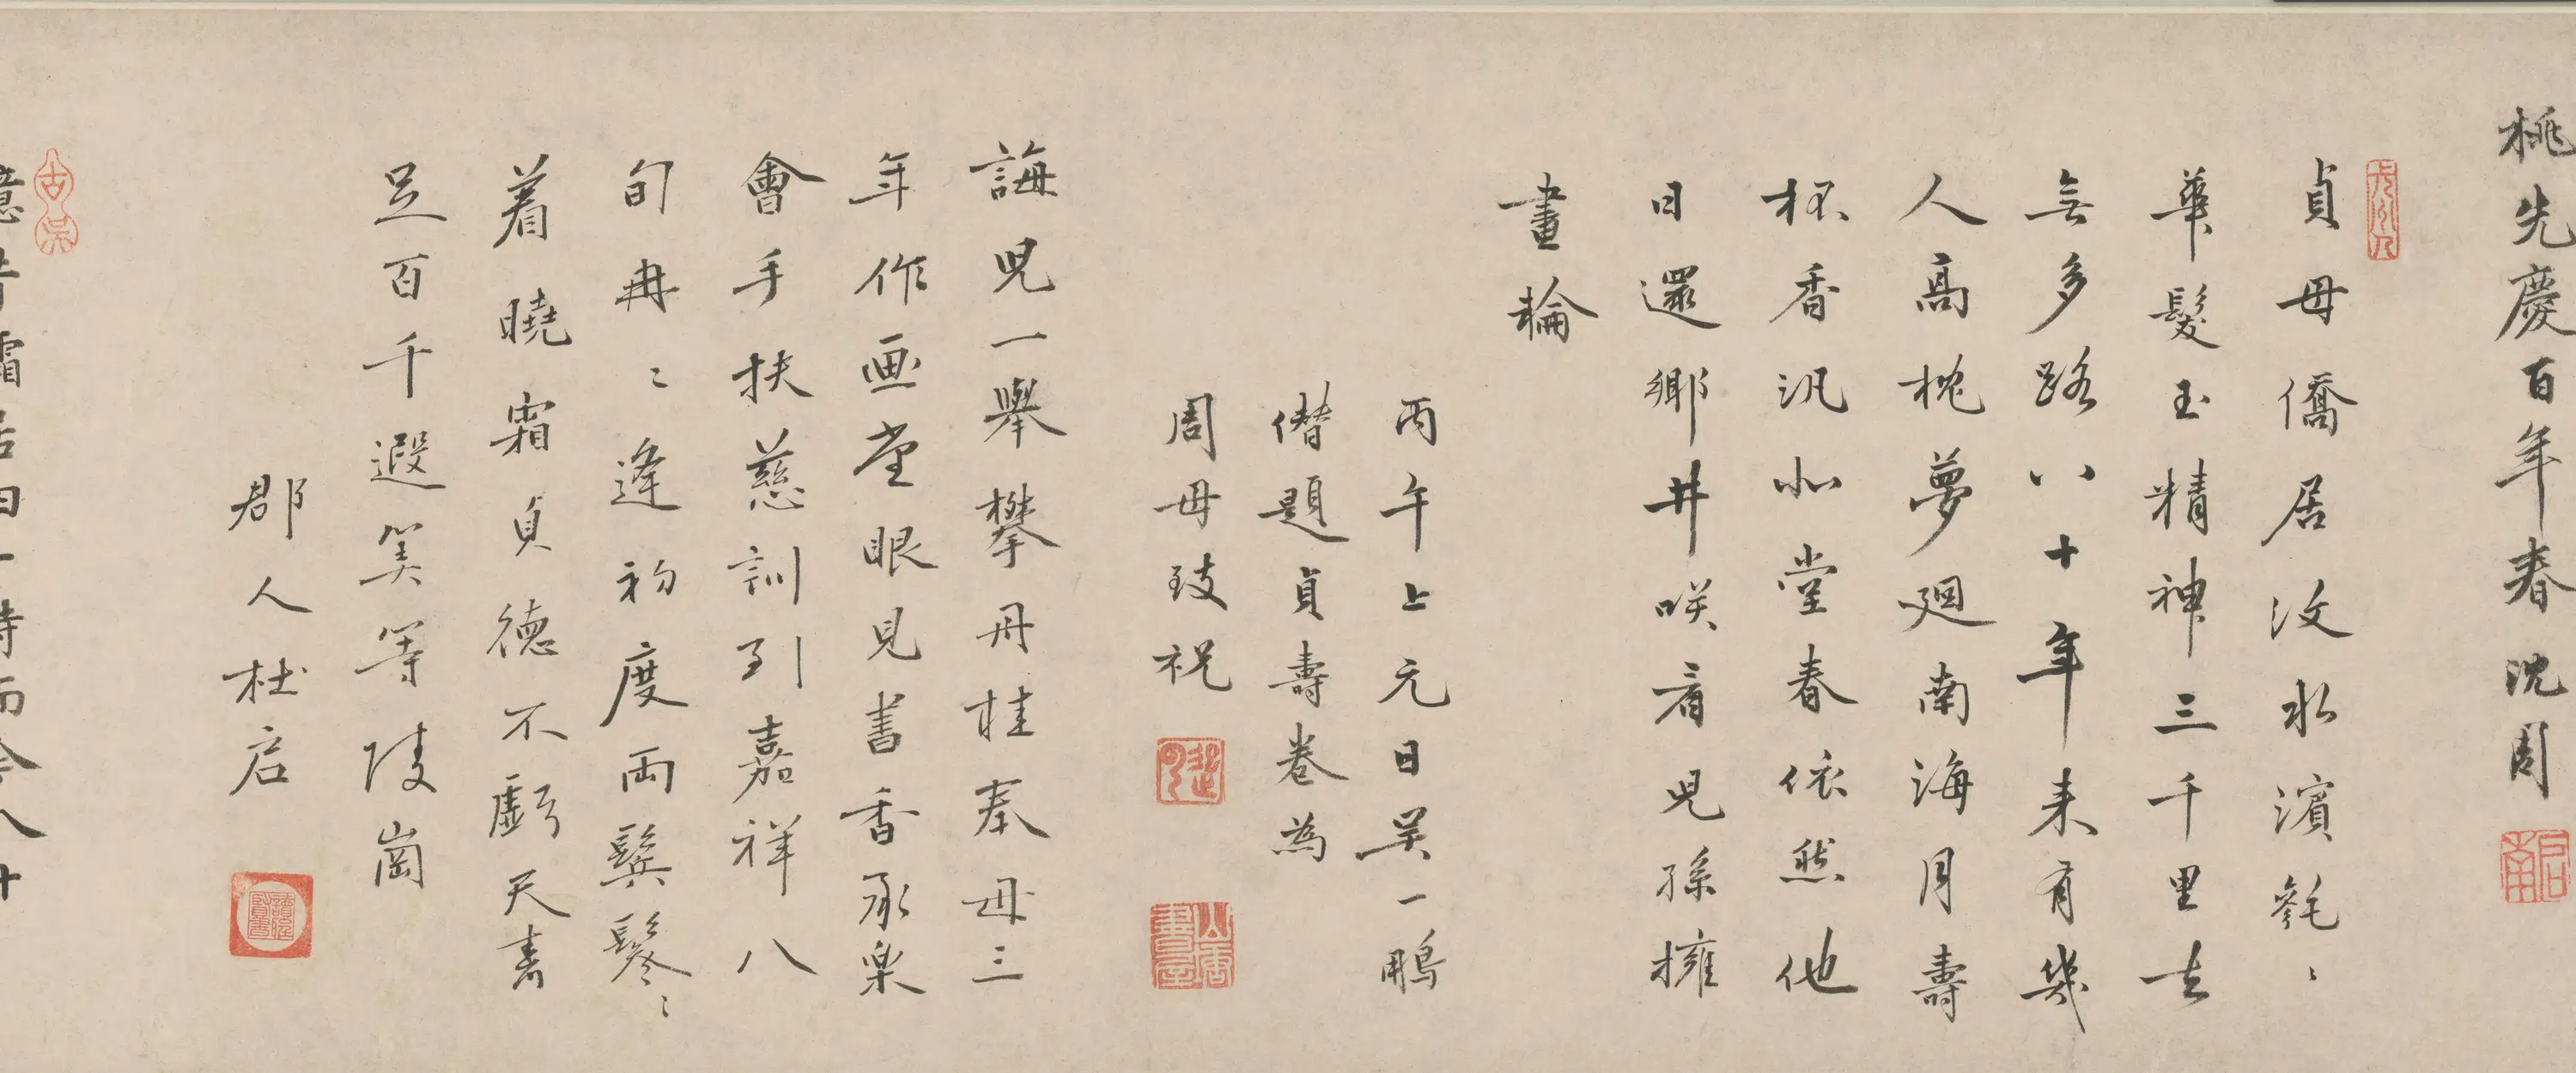 桃先慶百年春沈周
貞母僑居汶水濱毿〻
華髮玉精神三千里去
無多路八十年来有幾
人高枕夢廻南海月壽
杯香汎北堂春依然他
日還鄉井咲看児孫擁
畫輪
丙午上元日吴一鵬
僭題貞壽卷為
周母致祝
誨児一舉攀丹桂奉母三
年作画堂眼見書香承樂
會手扶慈訓到嘉祥八
旬冉〻逢初度両鬂鬖〻
着曉霜貞德不虧天壽
足百千遐筭等陵崗
郡人杜启
古吴